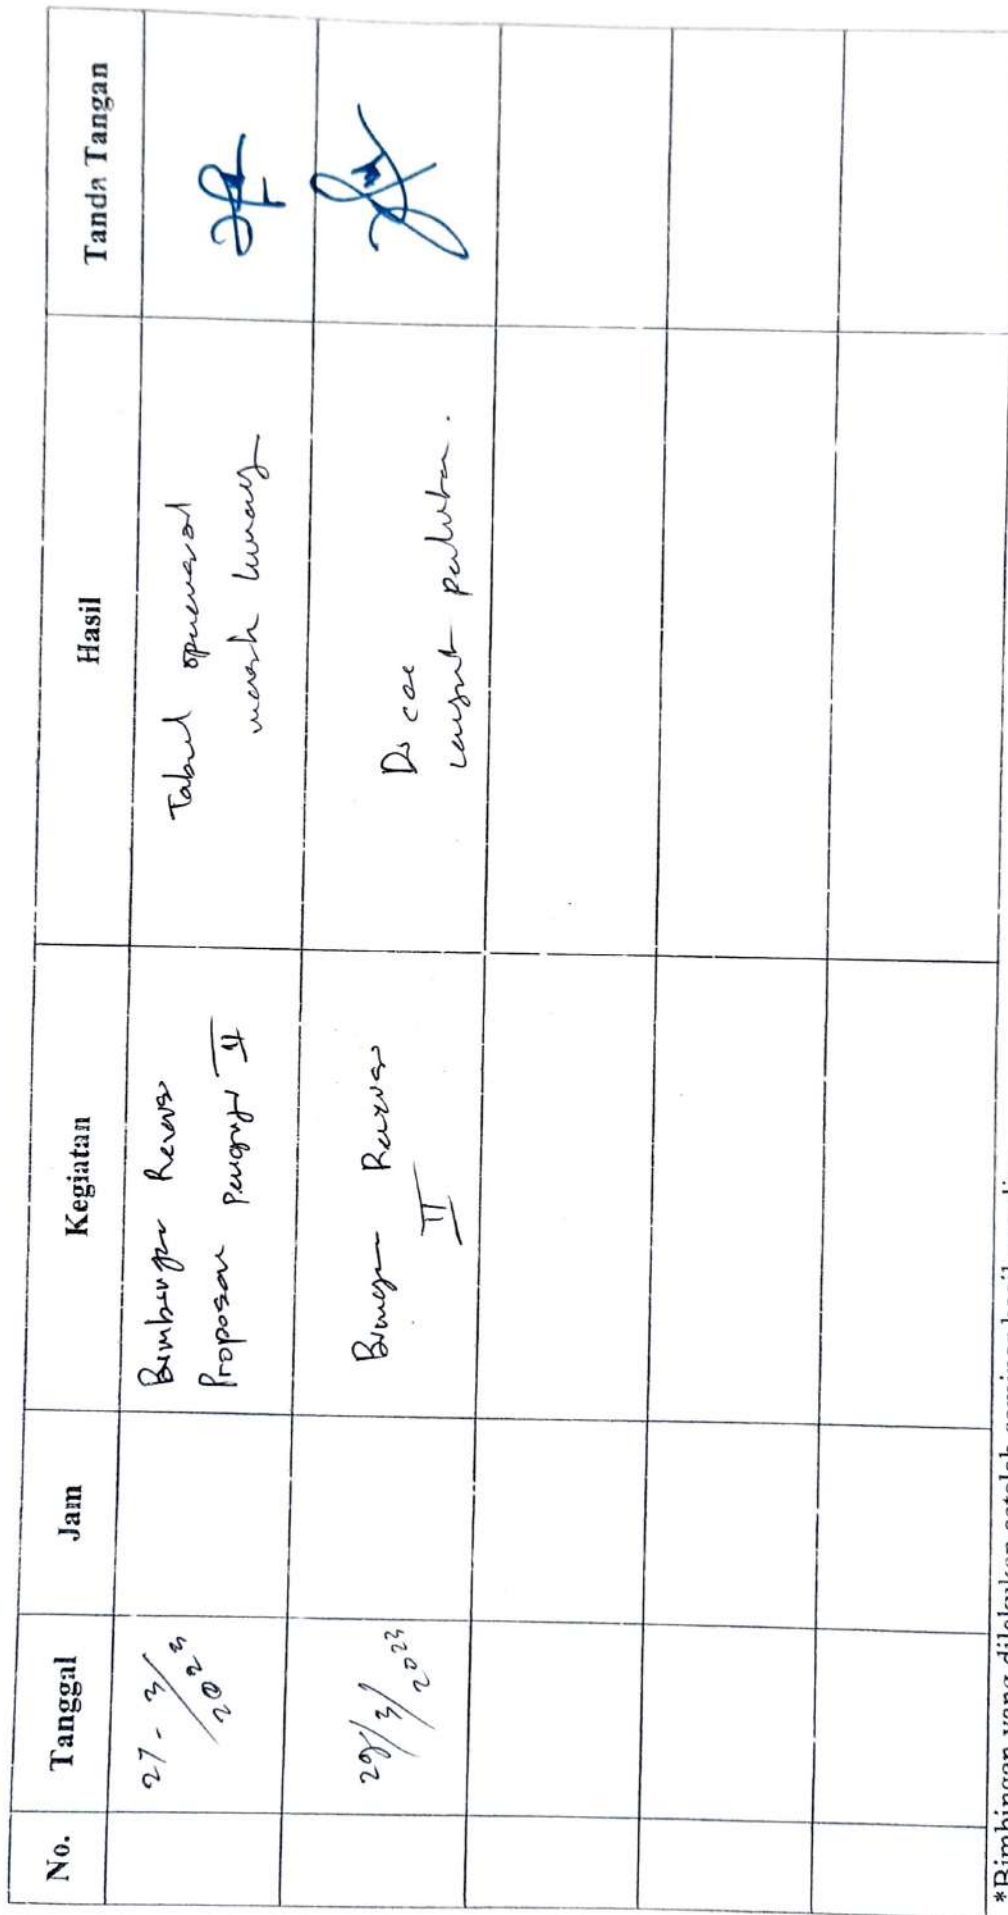 No. Tanggal Jam Kegiatan Hasil Tanda Tangan
27 - 3/2023
Bimbingan Revisi
Proposal Penguji II
Tabel operasional
masih kurang
29/3/2023
Revisi
II
Di acc
lanjut
*Bimbingan yang dilakukan setelah seminar hasil